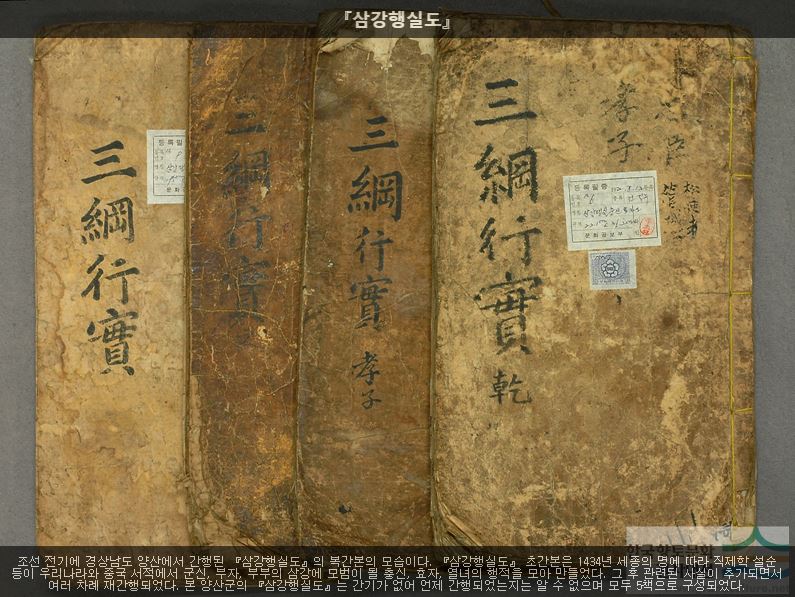 『삼강행실도』
三綱行實
三綱行實
三綱行實 孝子
三綱行實 乾
孝子
忠臣
등록필증
등록필증
문화공보부
조선 전기에 경상남도 양산에서 간행된 『삼강행실도』의 복간본의 모습이다. 『삼강행실도』 초간본은 1434년 세종의 명에 따라 직제학 설순
등이 우리나라와 중국 서적에서 군신, 부자, 부부의 삼강에 모범이 될 충신, 효자, 열녀의 행적을 모아 만들었다. 그 후 관련된 사실이 추가되면서
여러 차례 재간행되었다. 본 양산군의 『삼강행실도』는 간기가 없어 언제 간행되었는지는 알 수 없으며 모두 5책으로 구성되었다.